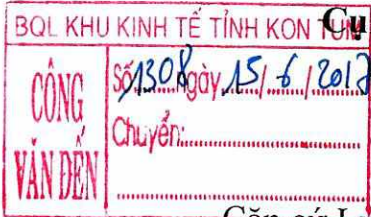 BQL KHU KINH TẾ TỈNH KON TUM
Cu
CÔNG VĂN ĐẾN
Số 1308 ngày 15/6/2017
Chuyển:
Căn cứ